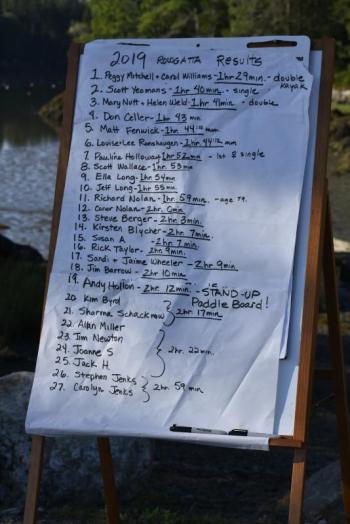 2019 ROWGATTA Results
1. Peggy Mitchell + Carol Williams - 1hr 29min. - double kayak
2. Scott Yeomans - 1hr 40min. - single
3. Mary Nutt + Helen Weld - 1hr. 41min. - double
4. Don Celler - 1hr 43 min
5. Matt Fenwick - 1hr 44 min
6. Louise + Lee 1hr. 44 min
7. Pauline Holloway - 1hr 52min - 1st ♀ single
8. Scott Wallace - 1hr. 53min
9. Ella Long - 1hr 54min
10. Jeff Long - 1hr 55min.
11. Richard Nolan - 1hr. 59min. - age 79.
12. Conor Nolan - 2hr. 0min
13. Steve Berger - 2hr. 3min.
14. Kirsten Blycher - 2hr. 7min.
15. Susan A - 2hr 7min.
16. Rick Taylor - 2hr 9min.
17. Sandi + Jaime Wheeler - 2hr 9min.
18. Jim Barrow - 2hr 10min
19. Andy Hollon - 2hr. 12min. - STAND-UP Paddle Board!
20. Kim Byrd
21. Sharma Schackmow } 2hr 17min
22. Allan Miller
23. Jim Newton
24. Joanne S } 2hr. 22min.
25. Jack H
26. Stephen Jenks
27. Carolyn Jenks } 2hr 59min